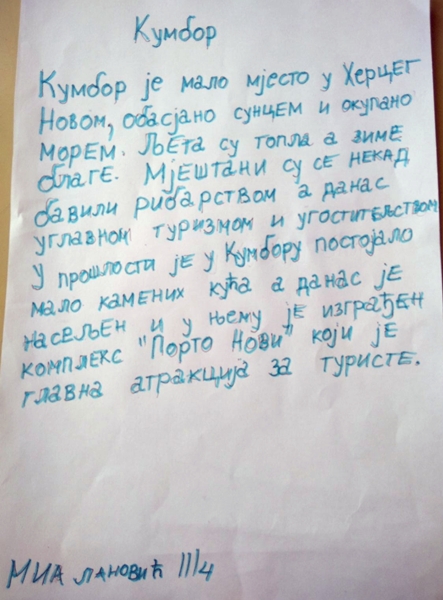 Кумбор
Кумбор је мало мјесто у Херцег
Новом, обасјано сунцем и окупано
морем. Љета су топла а зиме
благе. Мјештани су се некад
бавили рибарством а данас
углавном туризмом и угоститељством
У прошлости је у Кумбору постојало
мало камених кућа а данас је
насељен и у њему је изграђен
комплекс "Порто Нови" који је
главна атракција за туристе.
Миа Лановић III/4